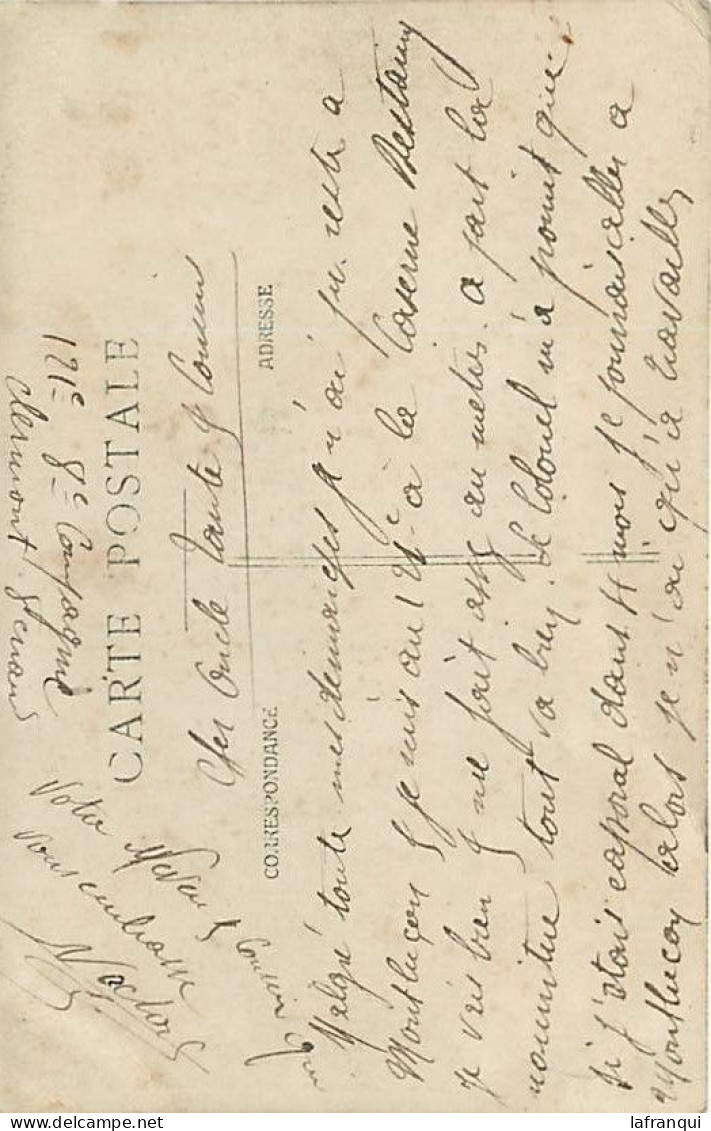 121e 8e Compagnie
Clermont Ferrand
CARTE POSTALE
Cher Oncle Tante & Cousins
CORRESPONDANCE
ADRESSE
Malgré toute mes demarches j'ai pu resté a
Montluçon & je suis au 121e à la Caserne Desaix
Je vais bien & me fait assez au metier. A part la
nourriture tout va bien. Le Colonel m'a promit que
si j'étais caporal dans 4 mois je pourrais aller a
Montluçon alors je n'ai qu'à travailler
Votre Neveu & Cousin qui
vous embrasse
lafranqui